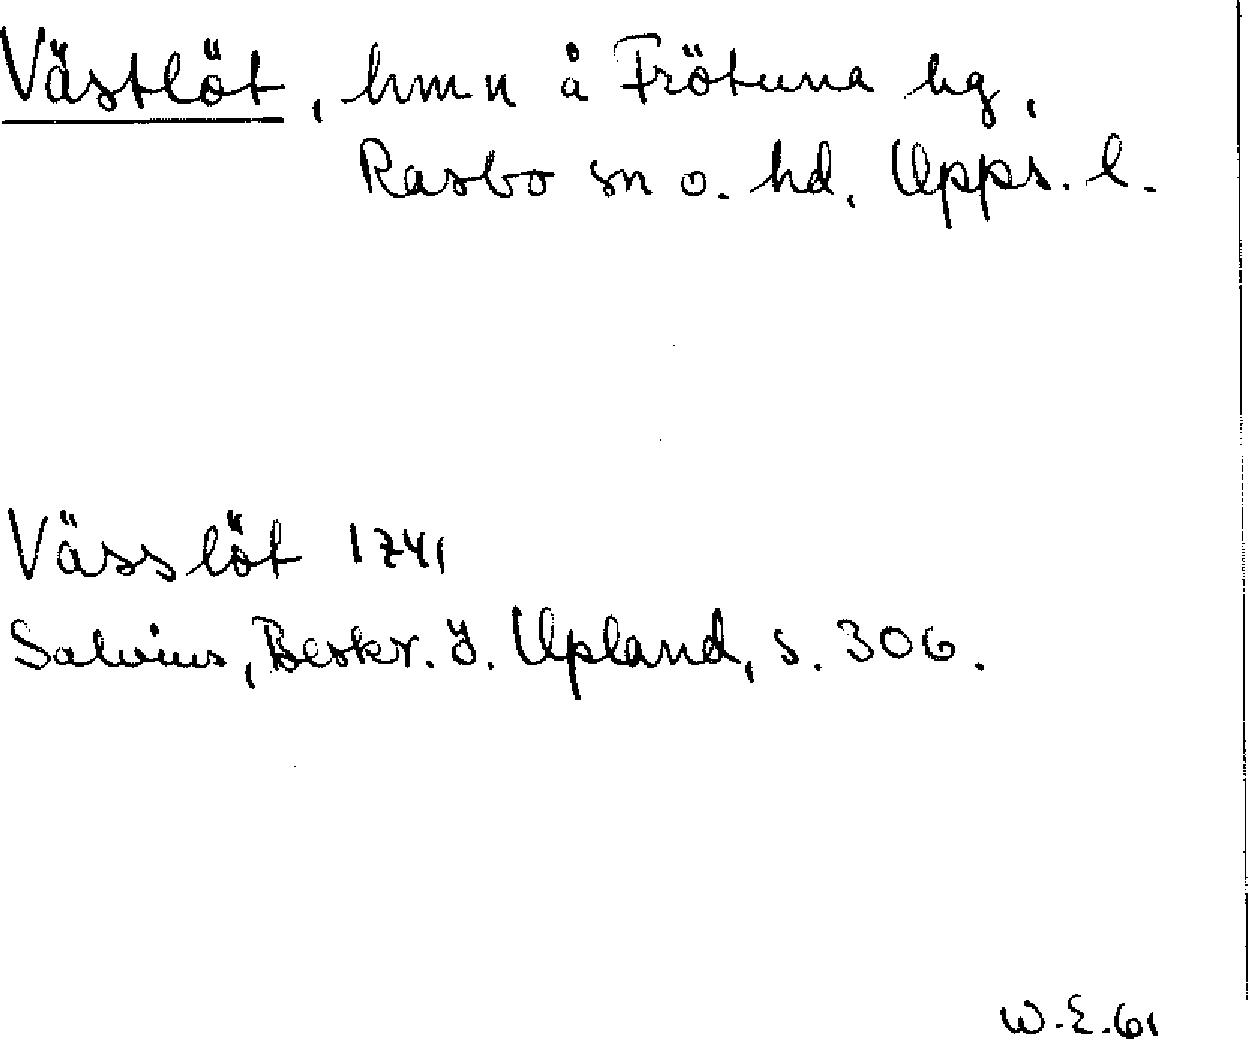 Västlöt, hmn å Frötuna hg,
Rasbo sn o. hd, Upps. l.
Vässlöt 1741
Salvius, Beskr. ö. Upland, s. 306.
W.E.61